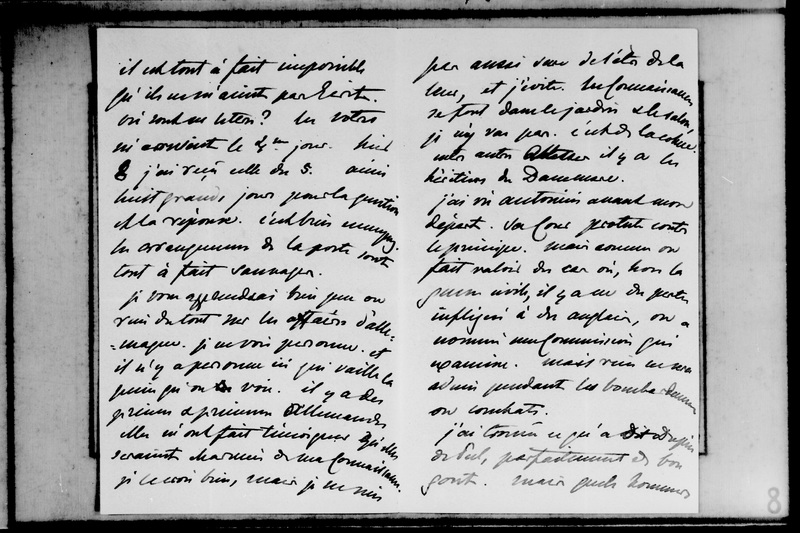 il est tout à fait impossible
qu'ils ne m'aient pas écrit.
où sont mes lettres? les votres
m'arrivent le 4me jour. hier
8 j'ai reçu celle du 5. ainsi
huit grands jours pour la question
et la réponse. c'est bien ennuyeux
les arrangemens de la poste sont
tout à fait sauvages.
je vous apprendrai bien peu ou
rien du tout sur les affaires d'alle-
=magne. je ne vois personne. et
il n'y a personne ici qui vaille la
peine qu'on le voie. il y a des
princes & princesses Allemandes
elles m'ont fait témoigner qu'elles
seraient charmées de ma connaissance.
je le crois bien, mais je ne suis
pas aussi sure de l'être de la
leur, et j'évite. les connaissances
se font dans le jardin & le salon,
je n'y vais pas. c'est de la cohue.
entre autres il y a les
héritiers du Danemarc.
j'ai vu antonini avant mon
départ. sa Cour proteste contre
le principe. mais comme on
fait valoir des cas où, hors la
guerre civile, il y a eu des pertes
infligées à des anglais, on a
nommé une Commission qui
examine. mais rien ne sera
admis pendant les bombardemens
ou combats.
j'ai trouvé ce qu'a dit Dupin
de Peel, parfaitement de bon
gout. mais quels hommes
8